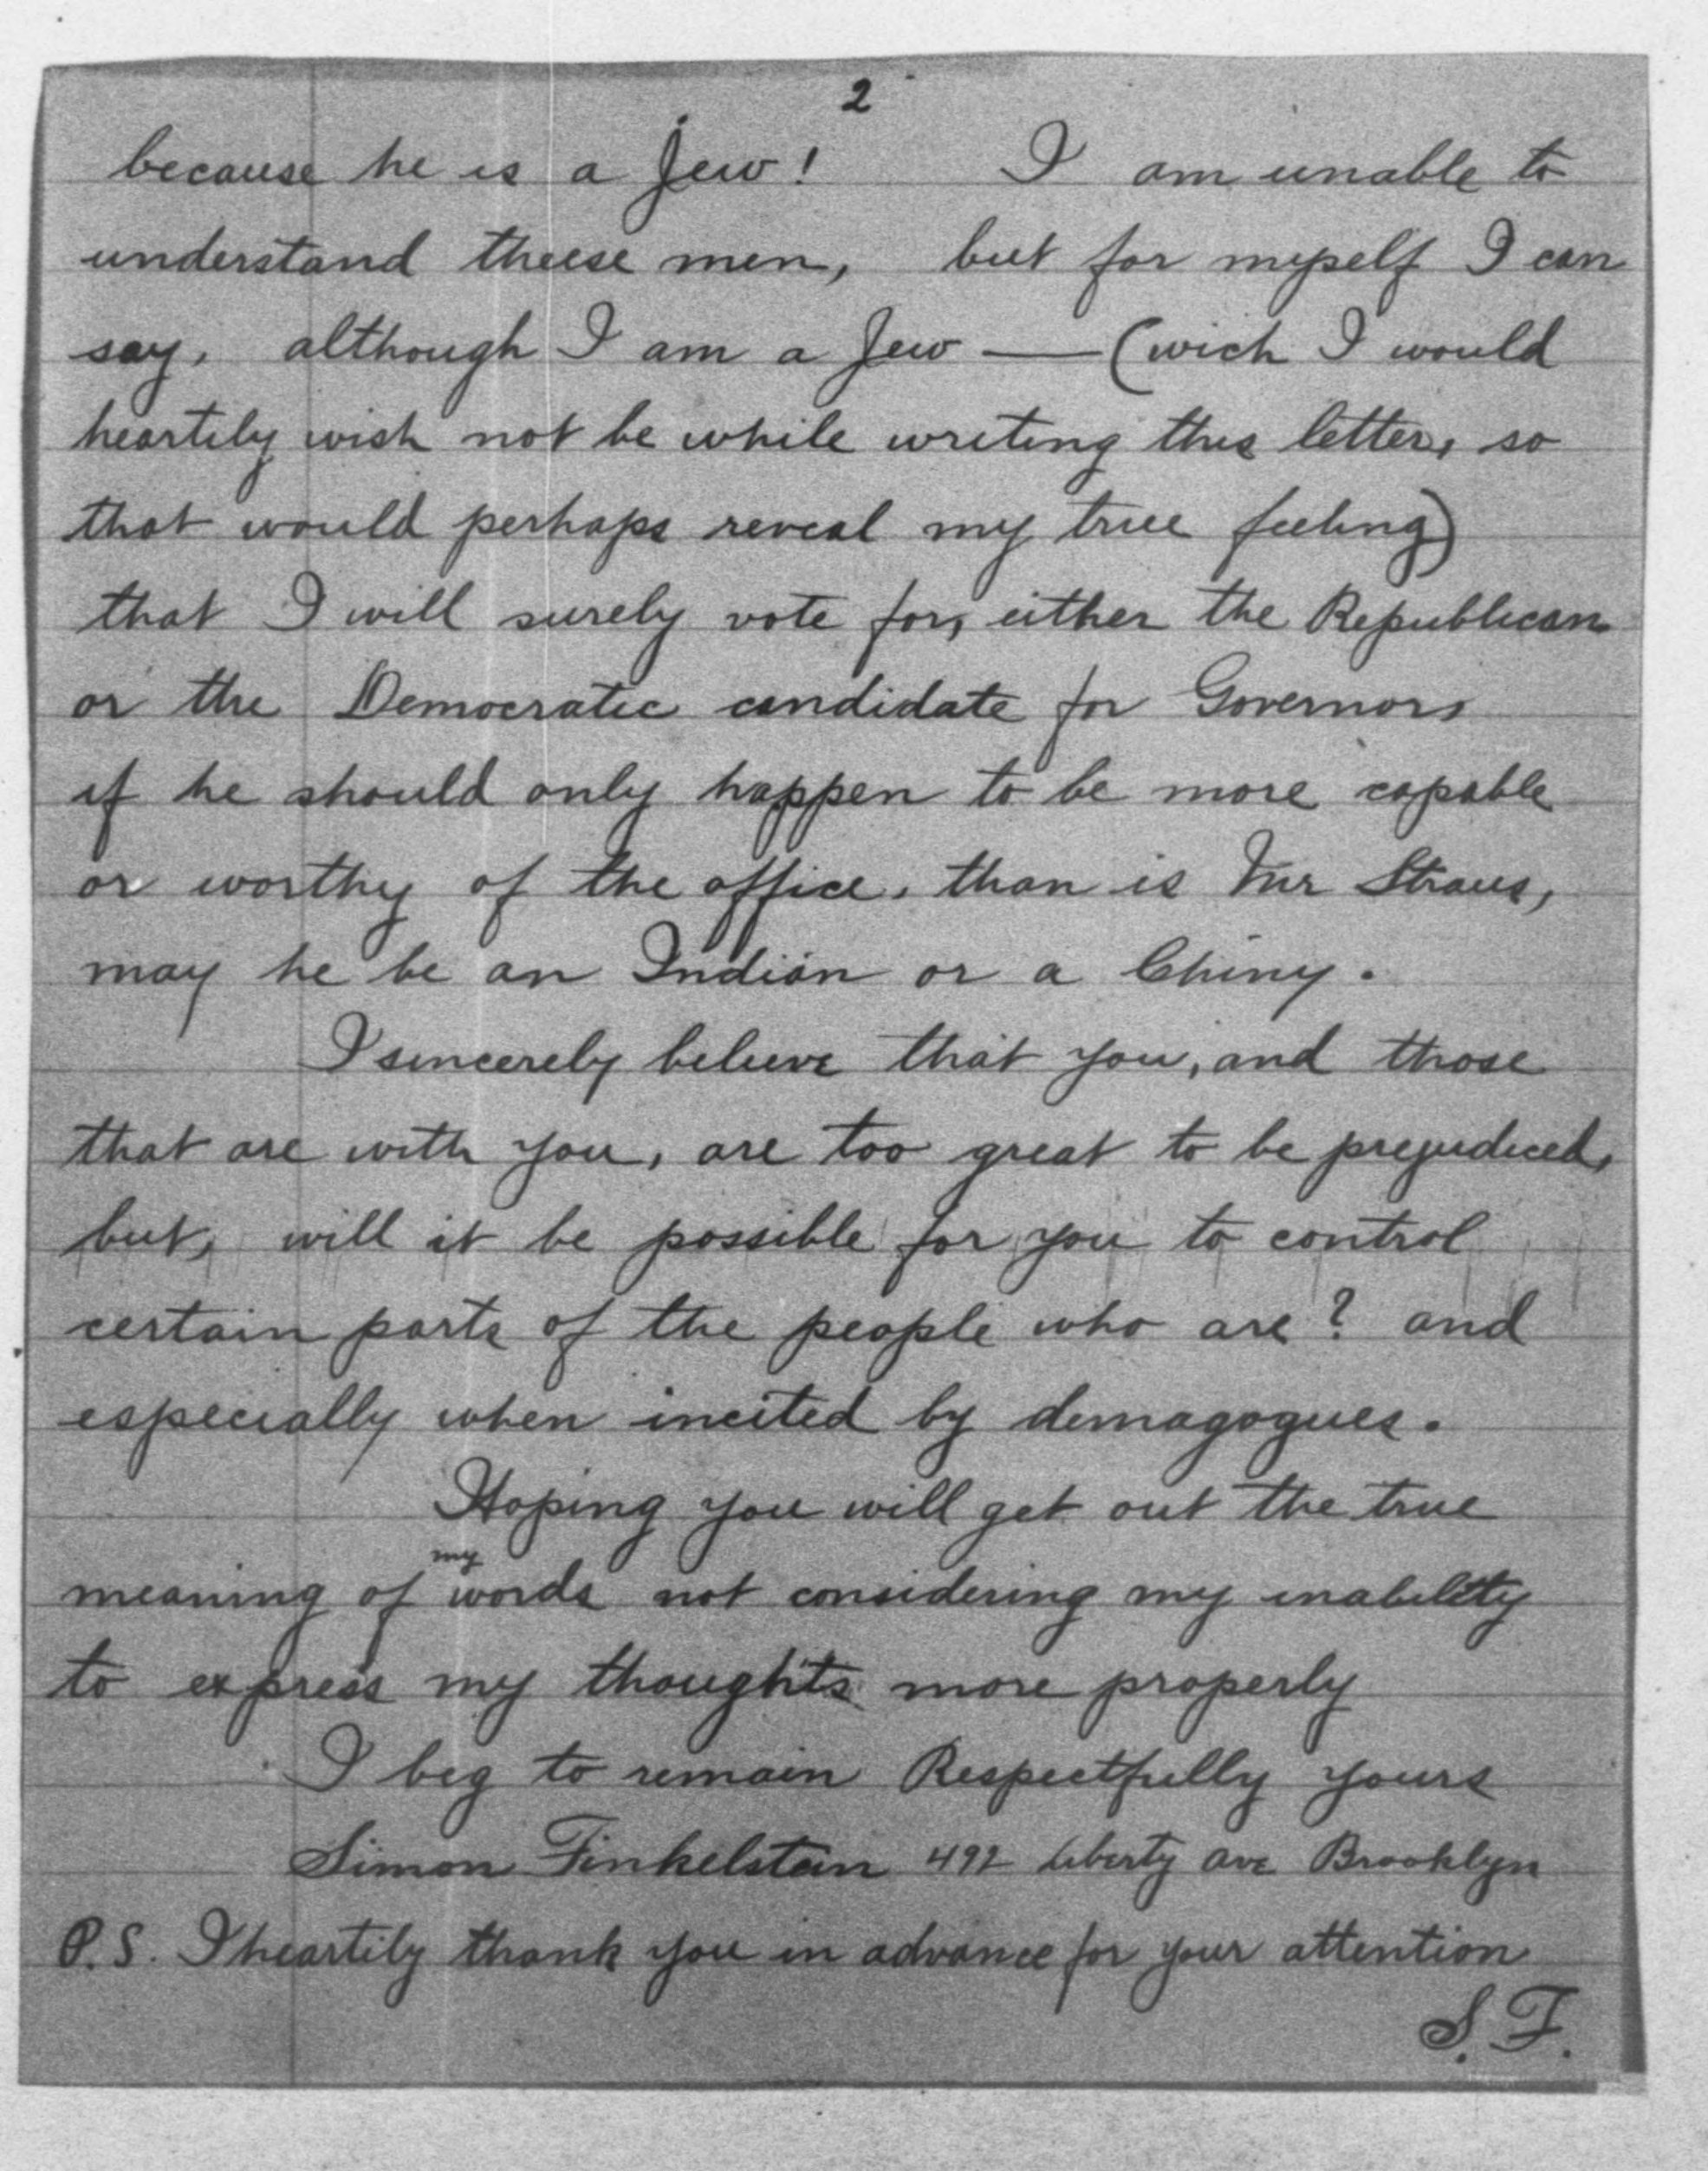 2
because he is a Jew! I am unable to
understand theese men, but for myself I can
say, although I am a Jew — (wich I would
heartily wish not be while writing this letter, so
that would perhaps reveal my true feeling)
that I will surely vote for, either the Republican
or the Democratic candidate for Governor,
if he should only happen to be more capable
or worthy of the office, than is Mr Straus,
may he be an Indian or a Chiny.
I sincerely believe that you, and those
that are with you, are too great to be prejudiced,
but, will it be possible for you to control
certain parts of the people who are? and
especially when incited by demagogues.
Hoping you will get out the true
meaning of my words not considering my inability
to express my thoughts more properly
I beg to remain Respectfully yours
Simon Finkelstein 492 Liberty Ave Brooklyn
P.S. I heartily thank you in advance for your attention
S.F.